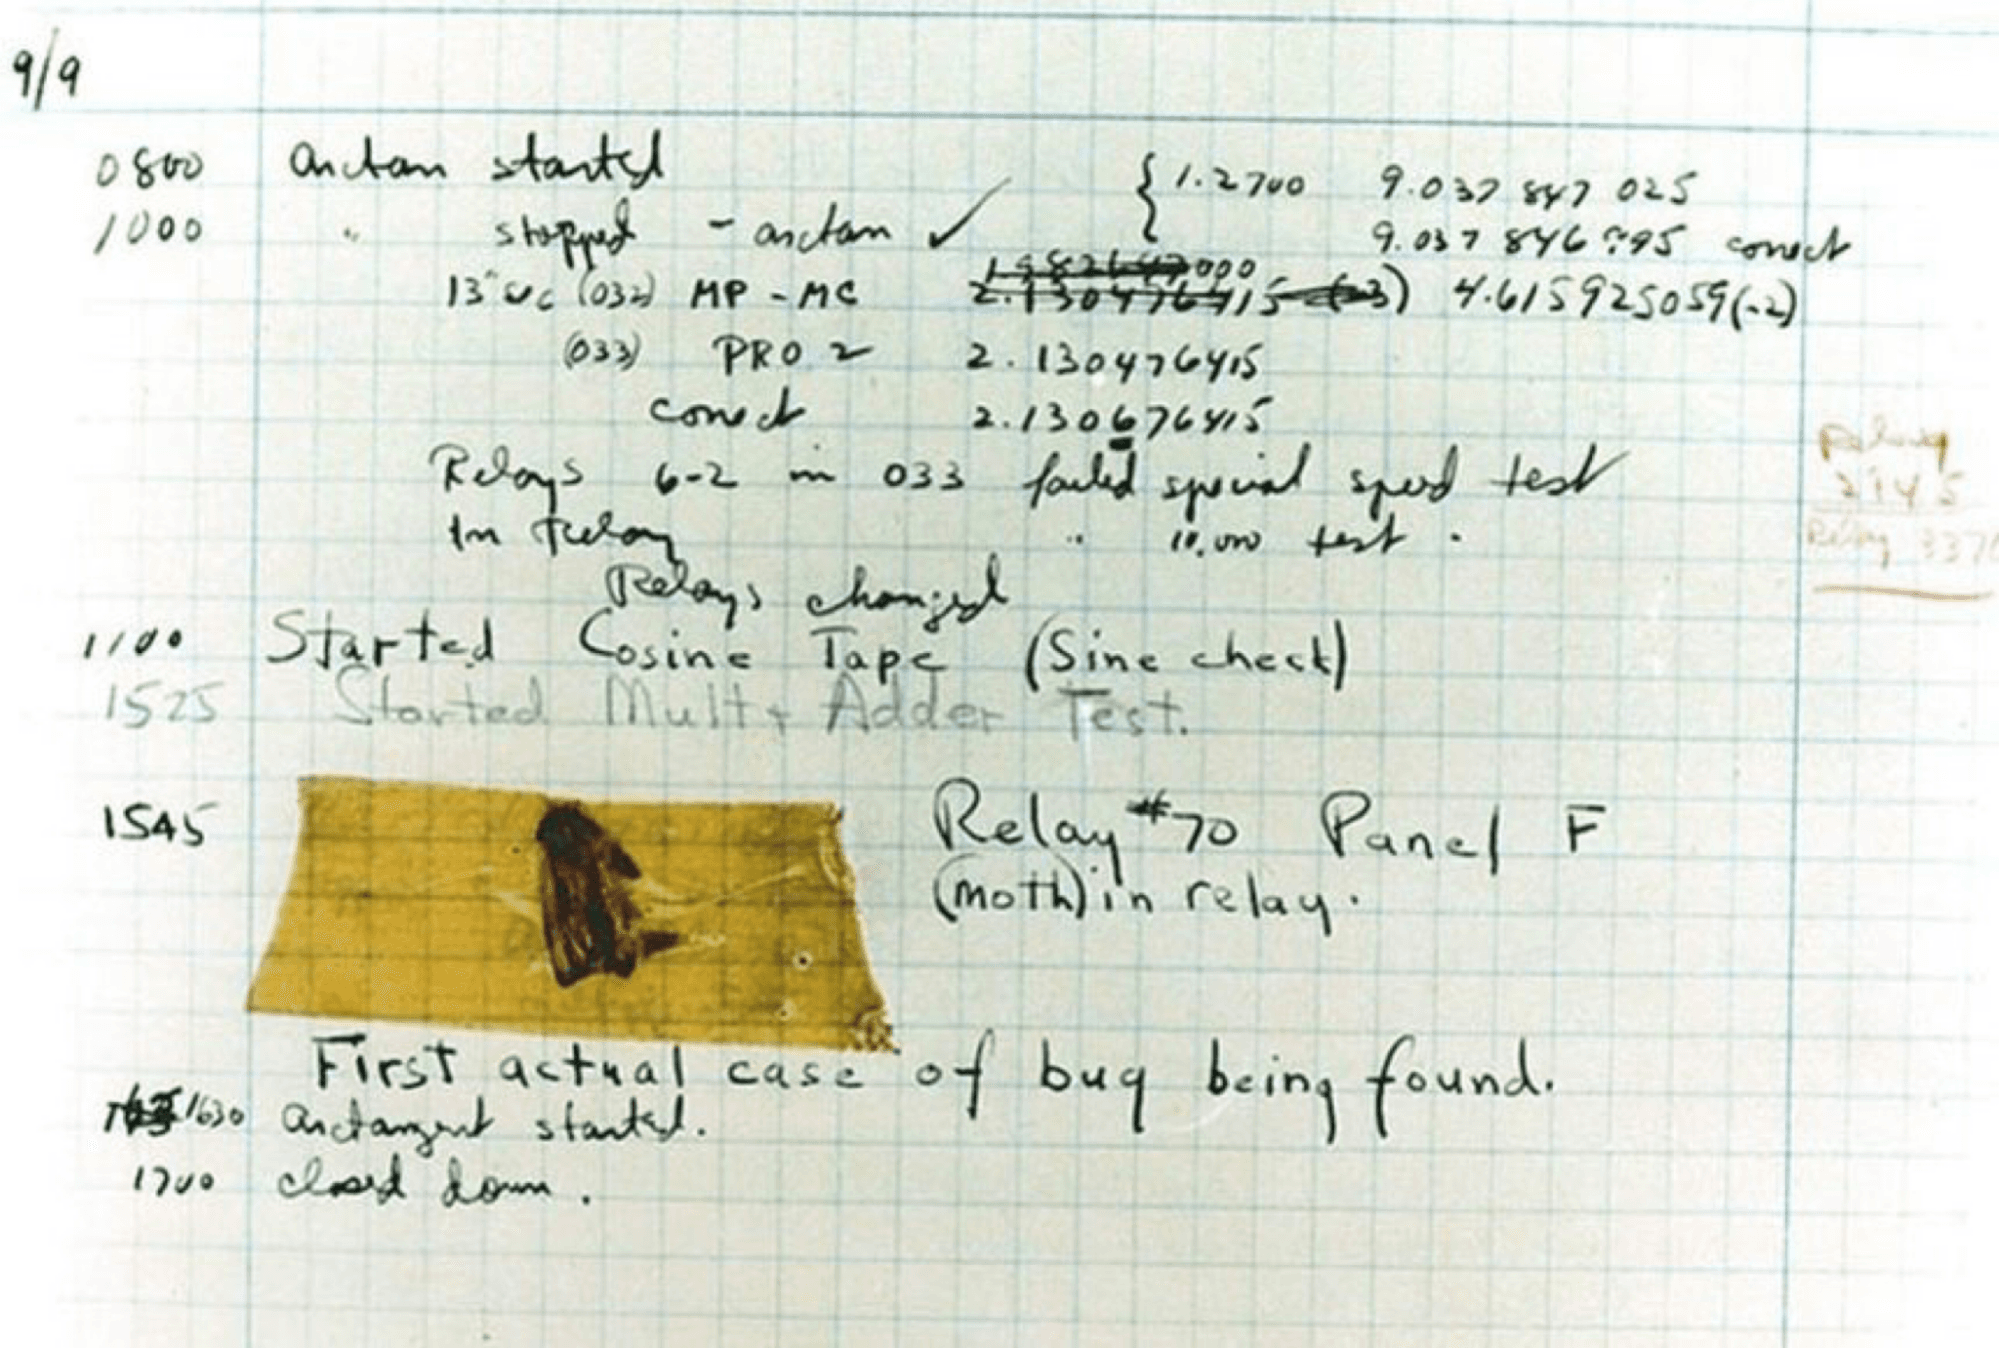 9/9
0800 arctan started { 1.2700 9.037 847 025
1000 " stopped - arctan ✓ 9.037 846 995 correct
13" uc (032) MP - MC 1.982647000 2.130476415 (-3) 4.615925059(-2)
(033) PRO 2 2.130476415
correct 2.130676415
Relays 6-2 in 033 failed special speed test
In Relay " 10.000 test .
Relays changed
Relay
2145
Relay 3370
1100 Started Cosine Tape (Sine check)
1525 Started Mult+ Adder Test.
1545 Relay #70 Panel F
(moth) in relay.
First actual case of bug being found.
1630 arctangent started.
1700 closed down.